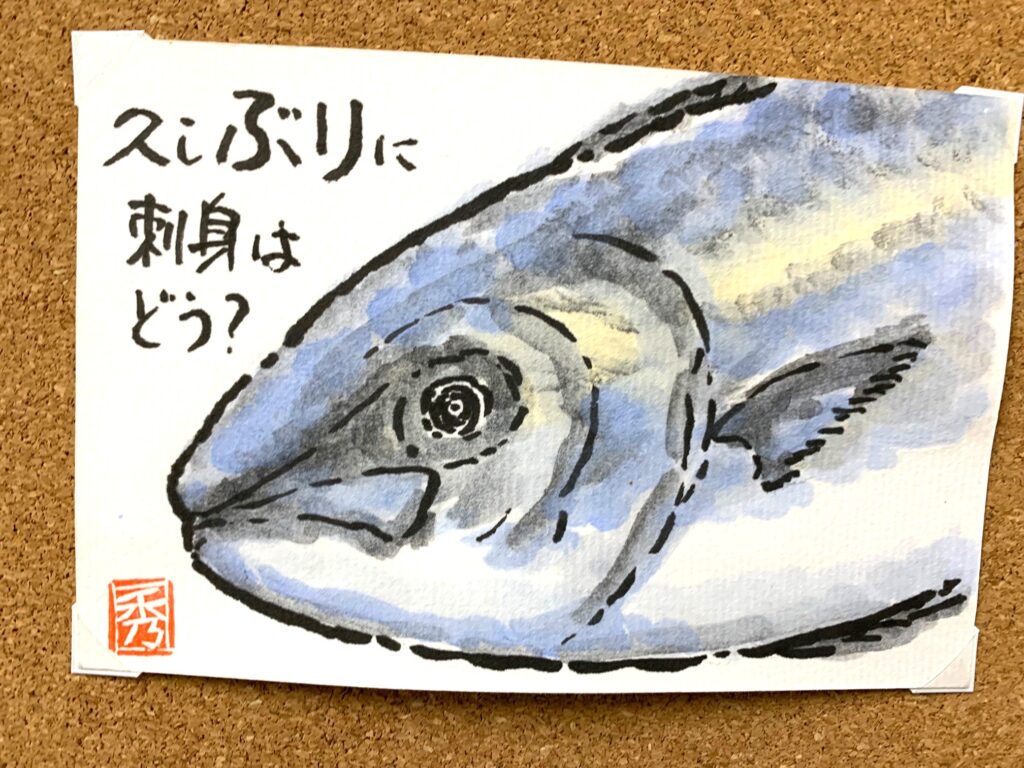 久しぶりに
刺身は
どう?
秀